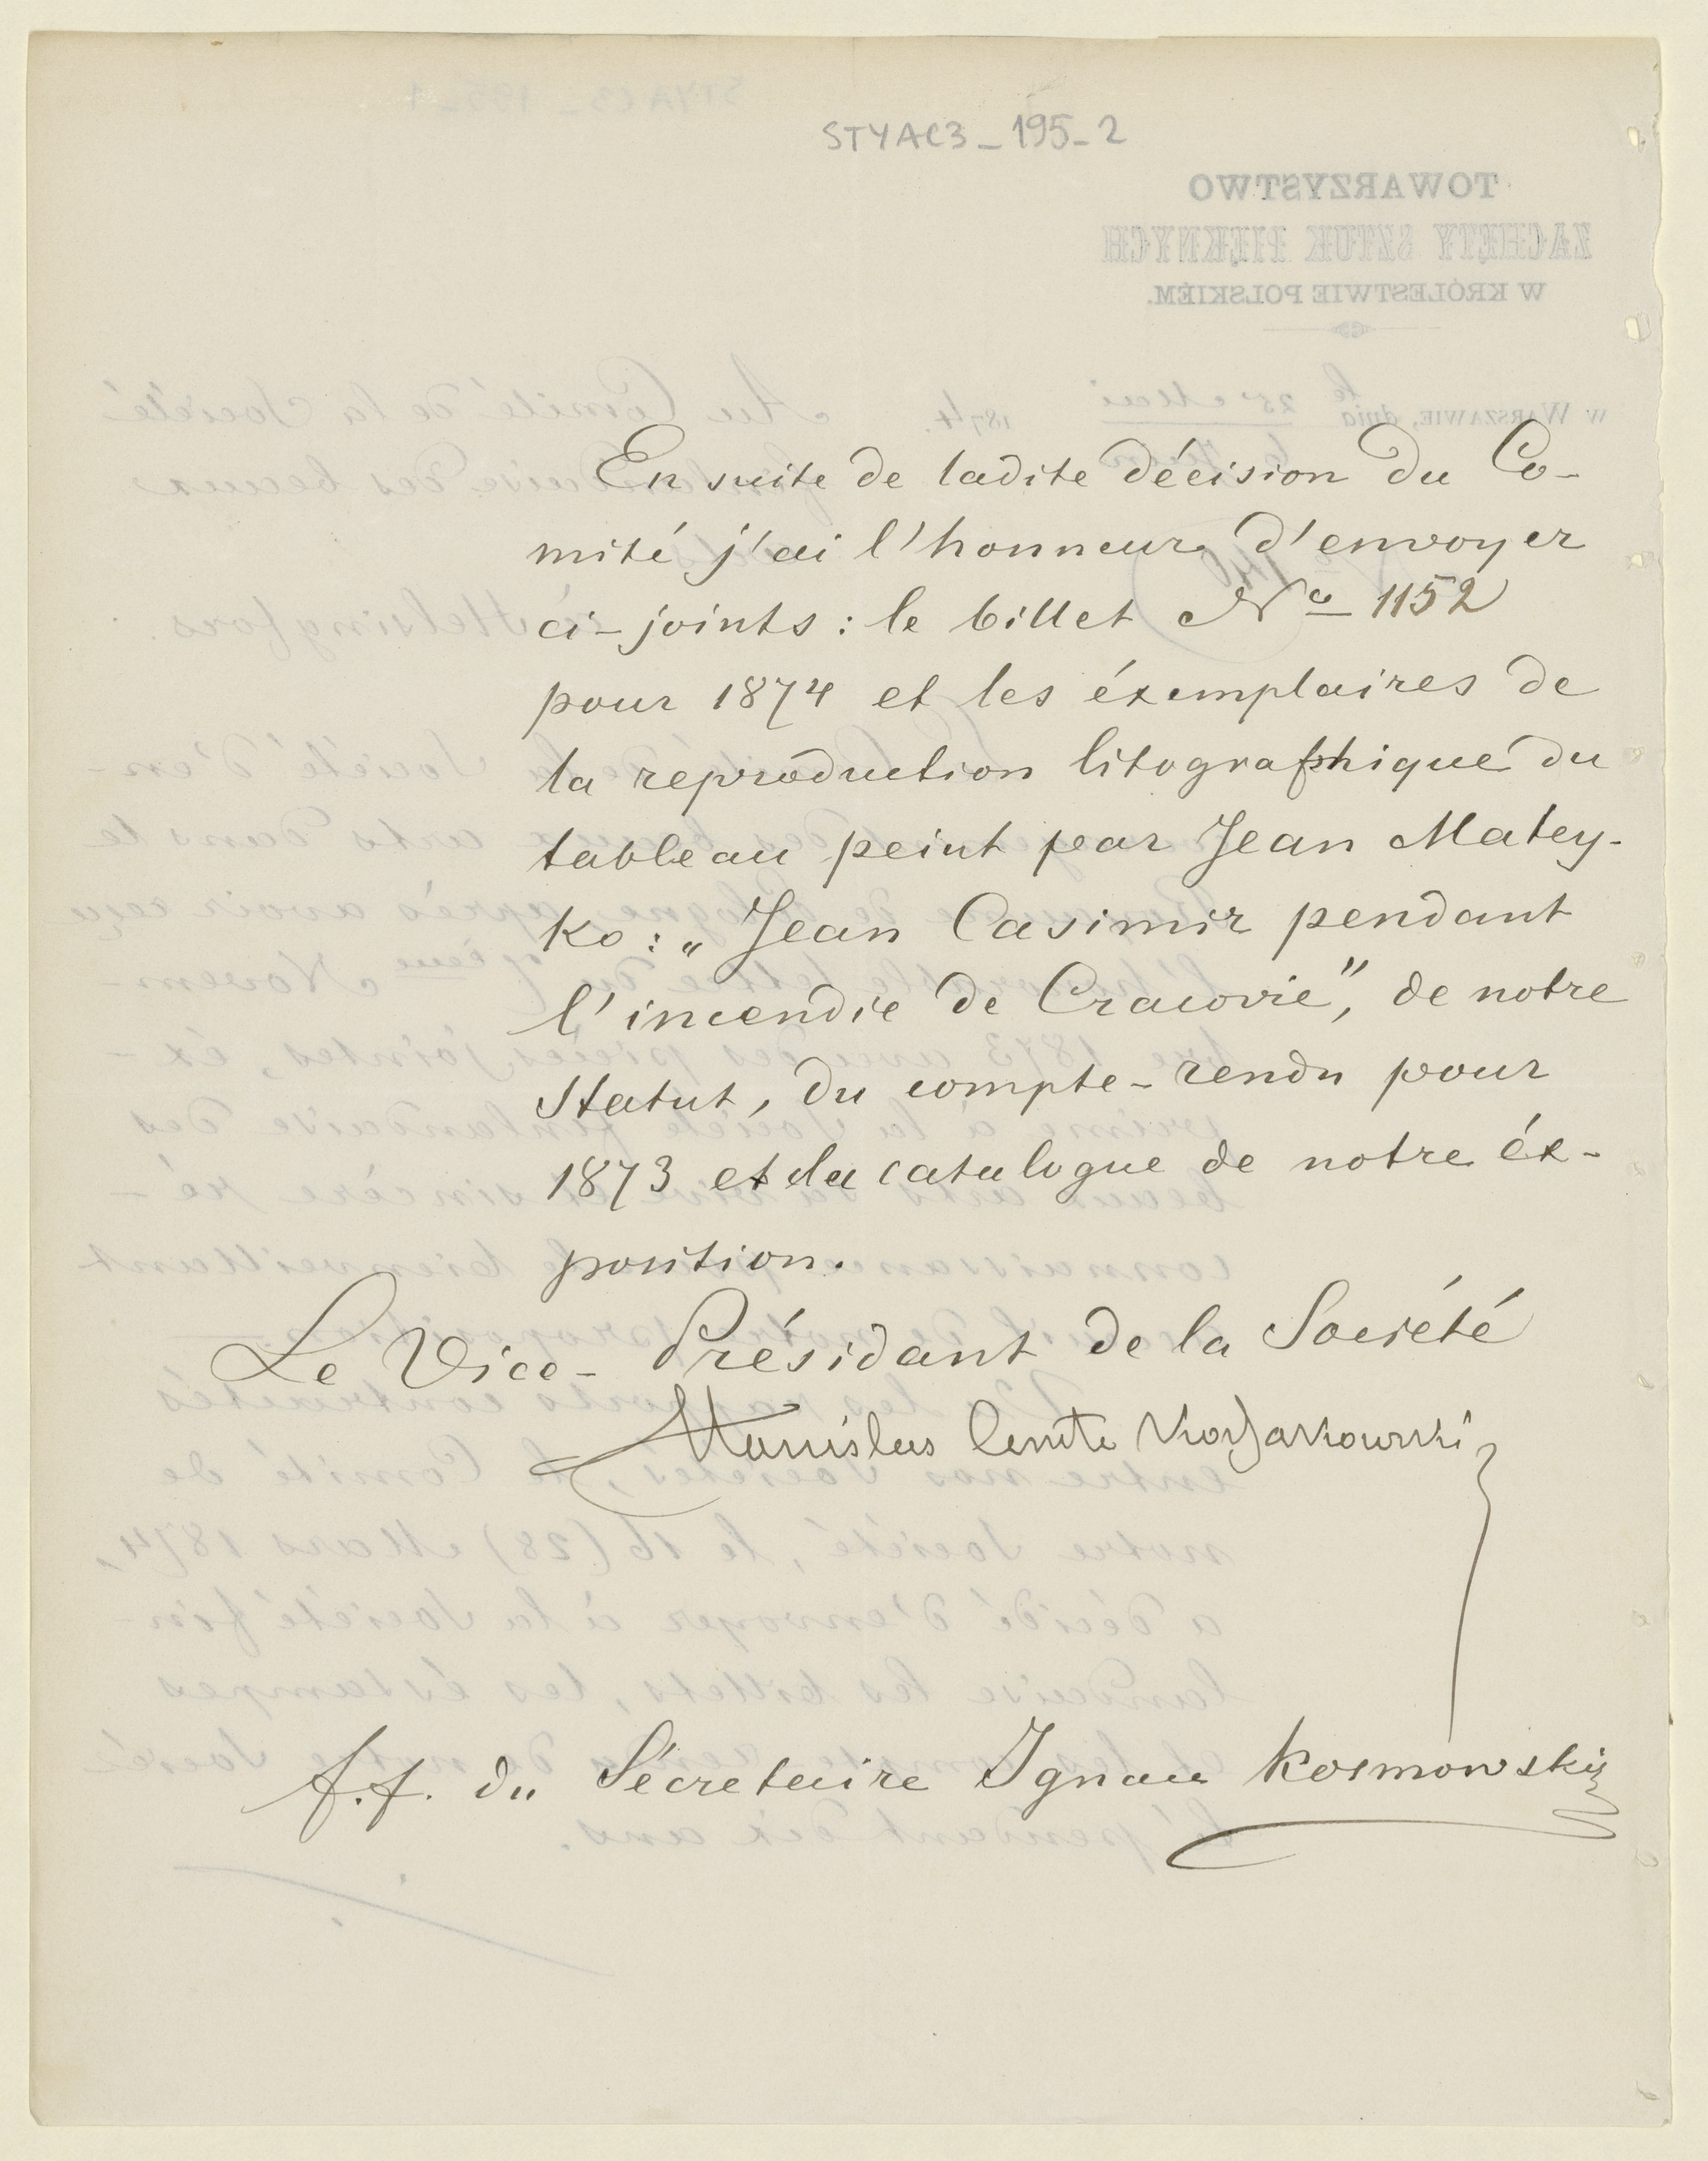 STYAC3_195_2
En suite de ladite décision du Co-
mité j'ai l'honneur d'envoyer
ci-joints : le billet No 1152
pour 1874 et les éxemplaires de
la reproduction litographique du
tableau peint par Jean Matey-
ko : „Jean Casimir pendant
l'incendie de Cracovie", de notre
Statut, du compte-rendu pour
1873 et du catalogue de notre éx-
position.
Le Vice-Présidant de la Société
Stanislas Comte Kossakowski
f.f. du Sécretaire Ignace Kosmowski